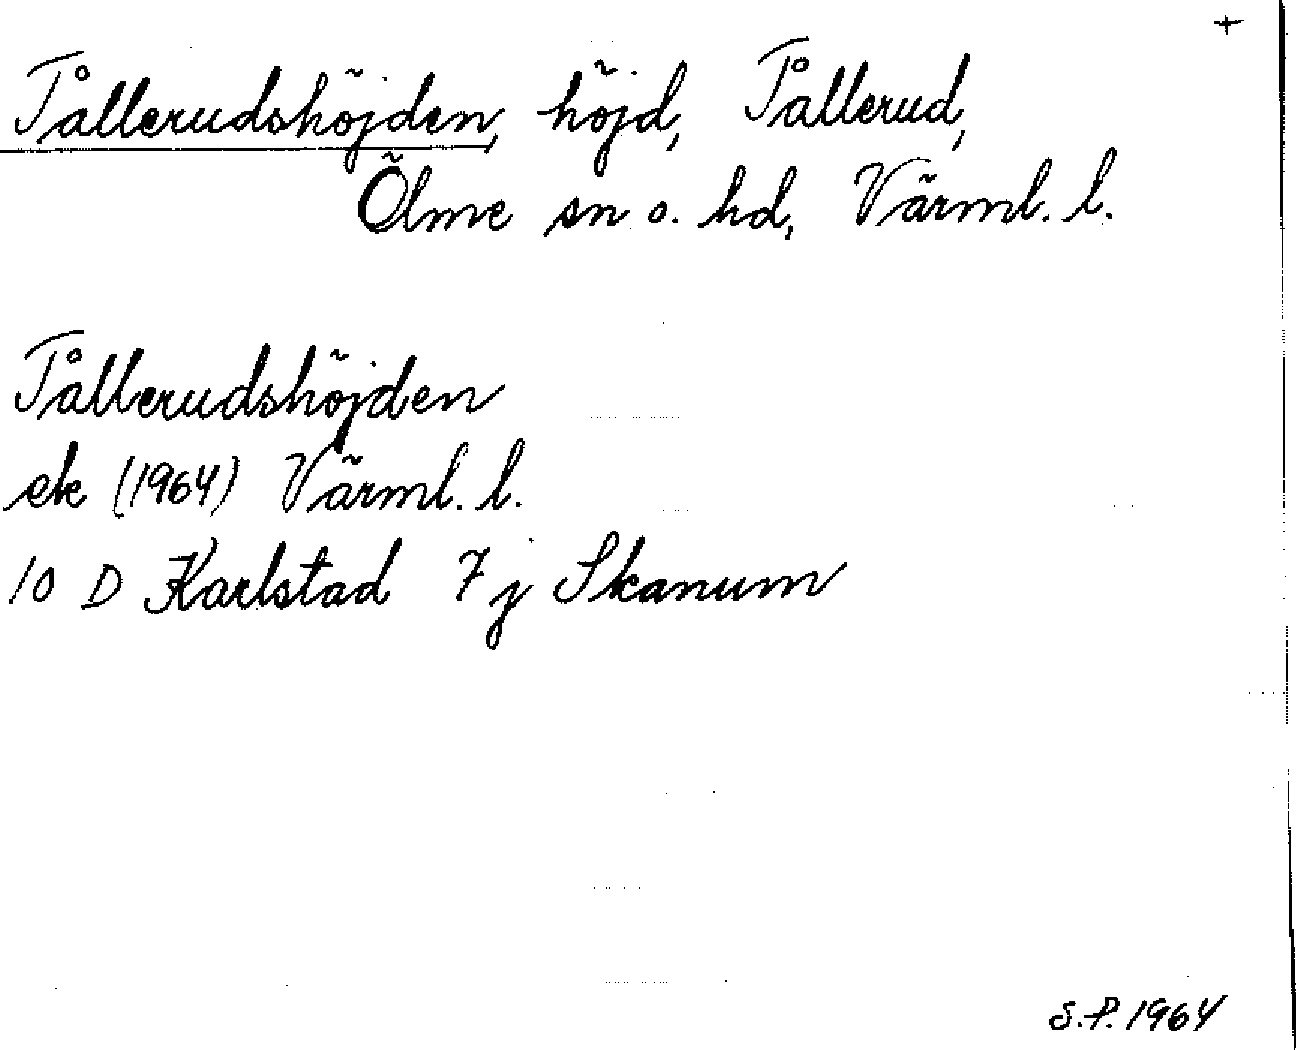 +
Tållerudshöjden, höjd, Tållerud,
Ölme sn o. hd, Värml. l.
Tållerudshöjden
ek (1964) Värml. l.
10 D Karlstad 7 j Skanum
S.P. 1964